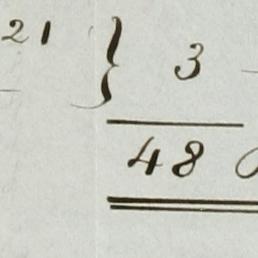 21 } 3 -
48